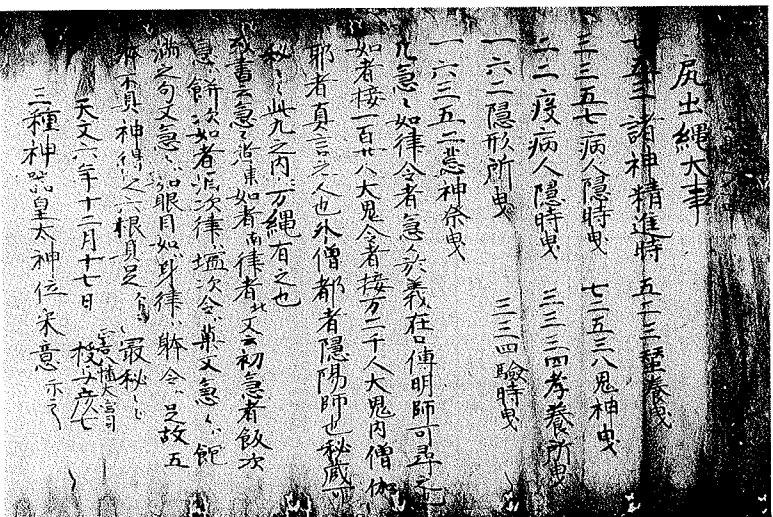 尻出縄大事
七五三諸神精進時 五十三蟇養曳
三三五七病人隠時曳 七二五三八鬼神曳
二二疫病人隠時曳 三三三四孝養所曳
一六二隠形所曳 三三四験時曳
一六三五二悲神祭曳
凡急々如律令者急々於義在口傳明師可尋之
如者接一百廿八大鬼令者接万二千人大鬼内僧伽
耶者真言之人也外僧都者隠陽師也秘蔵可
秘々此九之内万縄有之也
或書云急々者東如者南律者北文云初急者飯次
急々餅次如者次律塩次令菓文急々飽
満之句文急々如眼目如身律躰令足故五
神得之六根具足 最秘々
天文六年十二月十七日 授与
三種神器皇太神位 宋意 示之